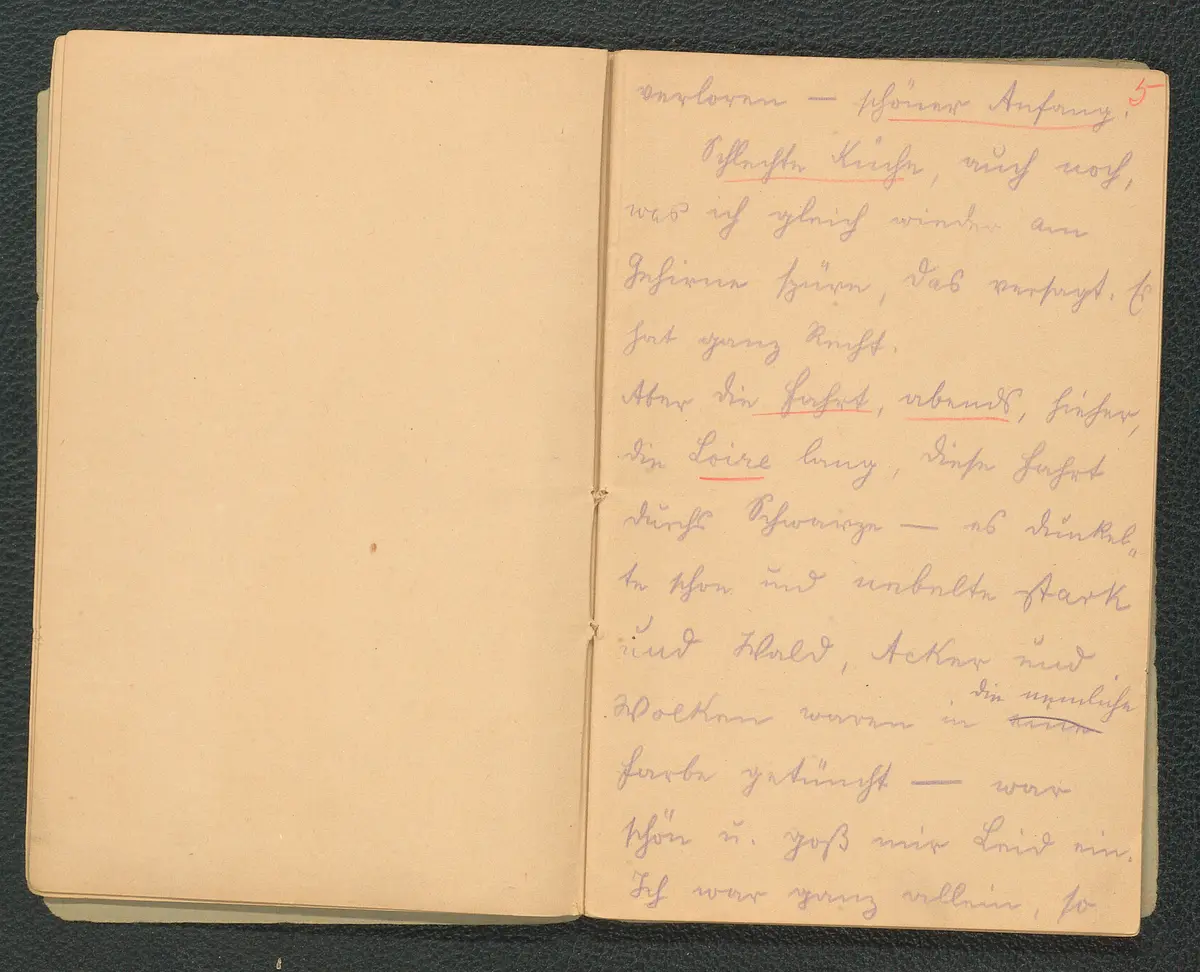 5
verloren — schöner Anfang.
Schlechte Küche, auch noch,
was ich gleich wieder am
Gehirne spüre, das versagt. Es
hat ganz Recht.
Aber die Fahrt, abends, hieher,
die Loire lang, diese Fahrt
durchs Schwarze — es dunkel„
te schon und nebelte stark
und Wald, Acker und
die nemliche
Wolken waren in eine
Farbe getüncht — war
schön u. goß mir Leid ein.
Ich war ganz allein, so